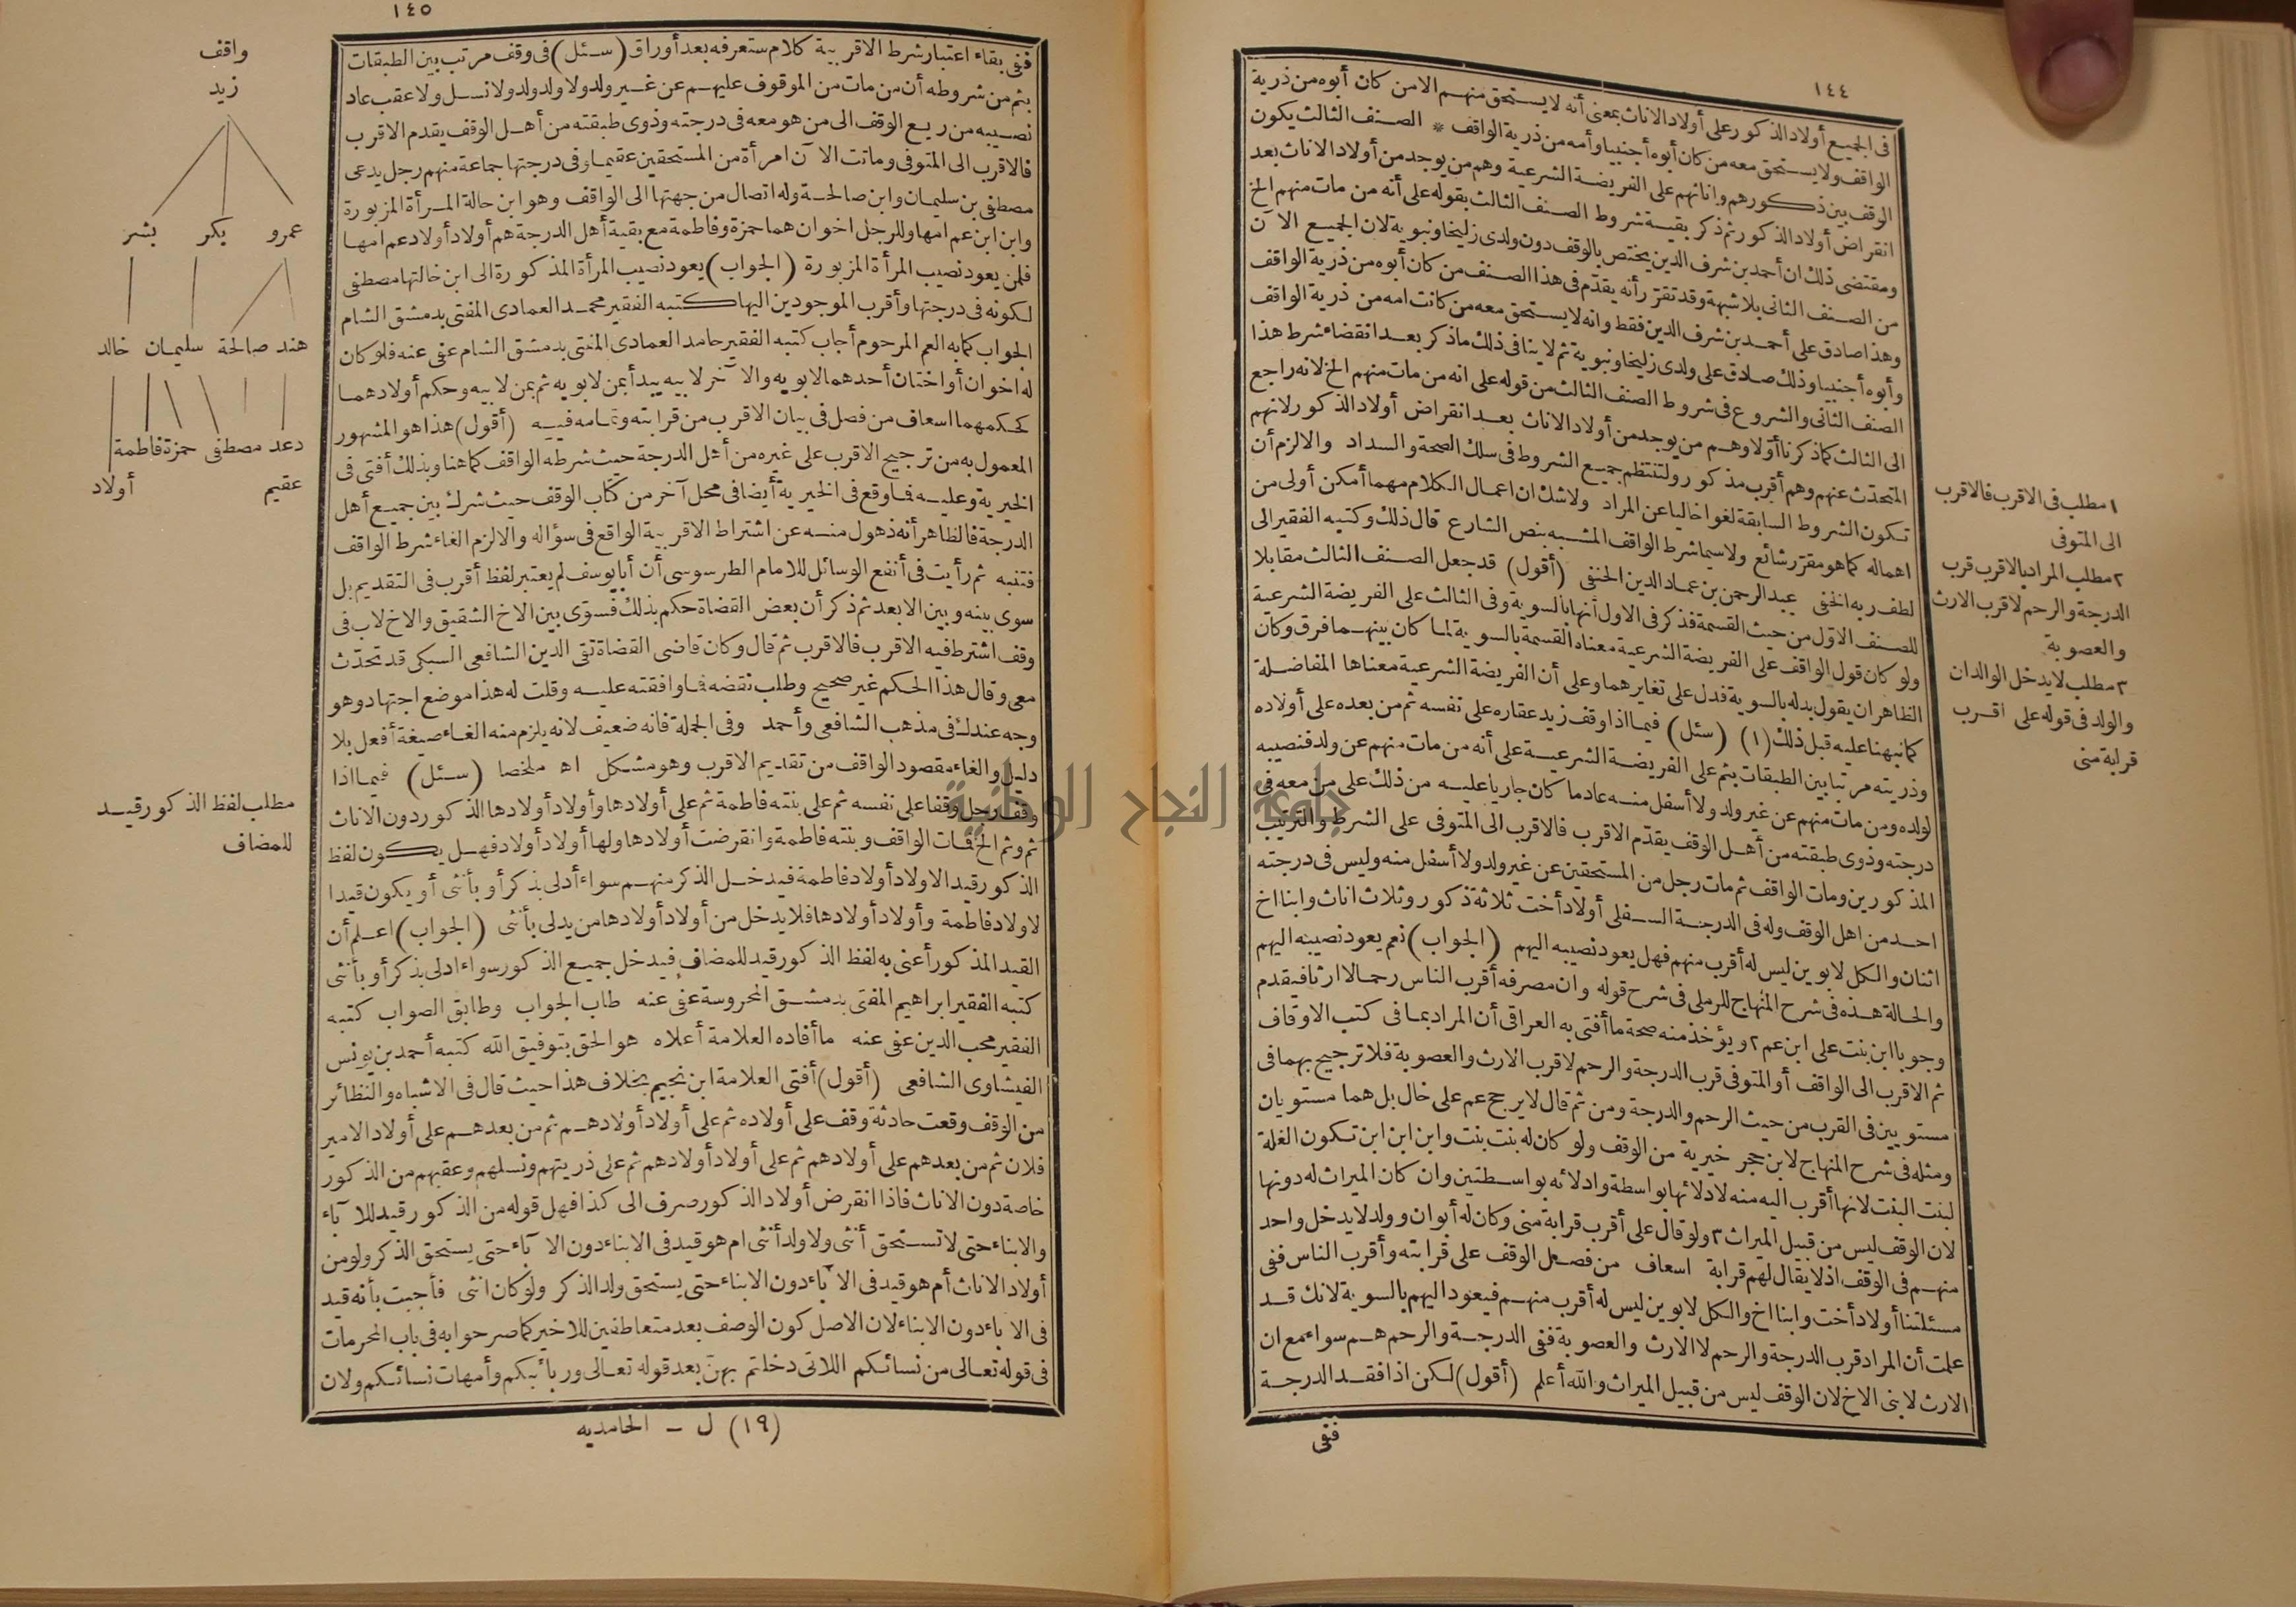 ١٤٤
فى الجميع أولاد الذكور على أولاد الاناث بمعنى أنه لا يستحق منهم الا من كان أبوه من ذرية
الواقف ولا يستحق معه من كان أبوه أجنبيا وأمه من ذرية الواقف * الصنف الثالث يكون
الوقف بين ذكورهم واناثهم على الفريضة الشرعية وهم من يوجد من أولاد الاناث بعد
انقراض أولاد الذكور ثم ذكر بقية شروط الصنف الثالث بقوله على أنه من مات منهم الخ
ومقتضى ذلك ان أحمد بن شرف الدين يختص بالوقف دون ولدى زليخا ونبوية لان الجميع الآن
من الصنف الثانى بلا شبهة وقد تقرر أنه يقدّم فى هذا الصنف من كان أبوه من ذرية الواقف
وهذا صادق على أحمد بن شرف الدين فقط وانه لا يستحق معه من كانت امه من ذرية الواقف
وأبوه أجنبيا وذلك صادق على ولدى زليخا ونبوية ثم لا ينافى ذلك ما ذكر بعد انقضاء شرط هذا
الصنف الثانى والشروع فى شروط الصنف الثالث من قوله على انه من مات منهم الخ لانه راجع
الى الثالث كما ذكرنا أولا وهم من يوجد من أولاد الاناث بعد انقراض أولاد الذكور لانهم
المتحدّث عنهم وهم أقرب مذكور ولتنتظم جميع الشروط فى سلك الصحة والسداد والالزم أن
تكون الشروط السابقة لغوا خاليا عن المراد ولا شك ان اعمال الكلام مهما أمكن أولى من
اهماله كما هو مقرّر شائع ولا سيما شرط الواقف المشبه بنص الشارع قال ذلك وكتبه الفقير الى
لطف ربه الخفى عبد الرحمن بن عماد الدين الحنفى (أقول) قد جعل الصنف الثالث مقابلا
للصنف الاوّل من حيث القسمة فذكر فى الاول أنها بالسوية وفى الثالث على الفريضة الشرعية
ولو كان قول الواقف على الفريضة الشرعية معناه القسمة بالسوية لما كان بينهما فرق وكان
الظاهر ان يقول بدله بالسوية فدل على تغايرهما وعلى أن الفريضة الشرعية معناها المفاضلة
كما نبهنا عليه قبل ذلك (١) (سئل) فيما اذا وقف زيد عقاره على نفسه ثم من بعده على أولاده
وذريته مرتبا بين الطبقات بثم على الفريضة الشرعية على أنه من مات منهم عن ولد فنصيبه
لولده ومن مات منهم عن غير ولد ولا أسفل منه عاد ما كان جاريا عليه من ذلك على من معه فى
درجته وذوى طبقته من أهل الوقف يقدّم الاقرب فالاقرب الى المتوفى على الشرط والترتيب
المذكورين ومات الواقف ثم مات رجل من المستحقين عن غير ولد ولا أسفل منه وليس فى درجته
احد من اهل الوقف وله فى الدرجة السفلى أولاد أخت ثلاثة ذكور وثلاث اناث وابنا اخ
اثنان والكل لابوين ليس له أقرب منهم فهل يعود نصيبه اليهم (الجواب) نعم يعود نصيبه اليهم
والحالة هذه فى شرح المنهاج للرملى فى شرح قوله وان مصرفه أقرب الناس رحما لا ارثا فيقدم
وجوبا ابن بنت على ابن عم ٢ ويؤخذ منه صحة ما أفتى به العراقى أن المراد بما فى كتب الاوقاف
ثم الاقرب الى الواقف أو المتوفى قرب الدرجة والرحم لا قرب الارث والعصوبة فلا ترجيح بهما فى
مستويين فى القرب من حيث الرحم والدرجة ومن ثم قال لا يرجح عم على خال بل هما مستويان
ومثله فى شرح المنهاج لابن حجر خيرية من الوقف ولو كان له بنت بنت وابن ابن ابن تكون الغلة
لبنت البنت لانها أقرب اليه منه لادلائها بواسطة وادلائه بواسطتين وان كان الميراث له دونها
لان الوقف ليس من قبيل الميراث ٣ ولو قال على أقرب قرابة منى وكان له أبوان وولد لا يدخل واحد
منهم فى الوقف اذ لا يقال لهم قرابة اسعاف من فصل الوقف على قرابته وأقرب الناس ففى
مسئلتنا أولاد أخت وابنا اخ والكل لابوين ليس له أقرب منهم فيعود اليهم بالسوية لانك قد
علمت أن المراد قرب الدرجة والرحم لا الارث والعصوبة ففى الدرجة والرحم هم سواء مع ان
الارث لابنى الاخ لان الوقف ليس من قبيل الميراث والله أعلم (أقول) لكن اذا فقد الدرجة
ففى
١ مطلب فى الاقرب فالاقرب
الى المتوفى
٢ مطلب المراد بالاقرب قرب
الدرجة والرحم لا قرب الارث
والعصوبة
٣ مطلب لا يدخل الوالدان
والولد فى قوله على اقرب
قرابة منى
١٤٥
ففى بقاء اعتبار شرط الاقربية كلام ستعرفه بعد أوراق (سئل) فى وقف مرتب بين الطبقات
بثم من شروطه أن من مات من الموقوف عليهم عن غير ولد ولا ولد ولد ولا نسل ولا عقب عاد
نصيبه من ريع الوقف الى من هو معه فى درجته وذوى طبقته من أهل الوقف يقدم الاقرب
فالاقرب الى المتوفى وماتت الآن امرأة من المستحقين عقيما وفى درجتها جماعة منهم رجل يدعى
مصطفى بن سليمان وابن صالحة وله اتصال من جهتها الى الواقف وهو ابن خالة المرأة المزبورة
وابن ابن عم امها وللرجل اخوان هما حمزة وفاطمة مع بقية أهل الدرجة هم أولاد أولاد عم امها
فلمن يعود نصيب المرأة المزبورة (الجواب) يعود نصيب المرأة المذكورة الى ابن خالتها مصطفى
لكونه فى درجتها وأقرب الموجودين اليها كتبه الفقير محمد العمادى المفتى بدمشق الشام
الجواب كما به العم المرحوم أجاب كتبه الفقير حامد العمادى المفتى بدمشق الشام عفى عنه فلو كان
له اخوان أو اختان أحدهما لابويه والآخر لابيه يبدأ بمن لابويه ثم بمن لابيه وحكم أولادهما
كحكمهما اسعاف من فصل فى بيان الاقرب من قرابته وتمامه فيه (أقول) هذا هو المشهور
المعمول به من ترجيح الاقرب على غيره من أهل الدرجة حيث شرطه الواقف كما هنا وبذلك أفتى فى
الخيرية وعليه فما وقع فى الخيرية أيضا فى محل آخر من كتاب الوقف حيث شرك بين جميع أهل
الدرجة فالظاهر أنه ذهول منه عن اشتراط الاقربية الواقع فى سؤاله والالزم الغاء شرط الواقف
فتنبه ثم رأيت فى أنفع الوسائل للامام الطرسوسى أن أبا يوسف لم يعتبر لفظ أقرب فى التقديم بل
سوى بينه وبين الابعد ثم ذكر أن بعض القضاة حكم بذلك فسوّى بين الاخ الشقيق والاخ لاب فى
وقف اشترط فيه الاقرب فالاقرب ثم قال وكان قاضى القضاة تقى الدين الشافعى السبكى قد تحدّث
معى وقال هذا الحكم غير صحيح وطلب نقضه فما وافقته عليه وقلت له هذا موضع اجتهاد وهو
وجه عندك فى مذهب الشافعى وأحمد وفى الجملة فانه ضعيف لانه يلزم منه الغاء صيغة أفعل بلا
دليل والغاء مقصود الواقف من تقديم الاقرب وهو مشكل اه ملخصا (سئل) فيما اذا
وقف رجل وقفا على نفسه ثم على بنته فاطمة ثم على أولادها وأولاد أولادها الذكور دون الاناث
ثم وثم الخ فمات الواقف وبنته فاطمة وانقرضت أولادها ولها أولاد أولاد فهل يكون لفظ
الذكور قيد الاولاد أولاد فاطمة فيدخل الذكر منهم سواء أدلى بذكر أو بأنثى أو يكون قيدا
لاولاد فاطمة وأولاد أولادها فلا يدخل من أولاد أولادها من يدلى بأنثى (الجواب) اعلم أن
القيد المذكور أعنى به لفظ الذكور قيد للمضاف فيدخل جميع الذكور سواء ادلى بذكر أو بأنثى
كتبه الفقير ابراهيم المفتى بدمشق المحروسة عفى عنه طاب الجواب وطابق الصواب كتبه
الفقير محب الدين عفى عنه ما أفاده العلامة أعلاه هو الحق بتوفيق الله كتبه أحمد بن يونس
العيثاوى الشافعى (أقول) أفتى العلامة ابن نجيم بخلاف هذا حيث قال فى الاشباه والنظائر
من الوقف وقعت حادثة وقف على أولاده ثم على أولاد أولادهم ثم من بعدهم على أولاد الامير
فلان ثم من بعدهم على أولادهم ثم على أولاد أولادهم ثم على ذريتهم ونسلهم وعقبهم من الذكور
خاصة دون الاناث فاذا انقرض أولاد الذكور صرف الى كذا فهل قوله من الذكور قيد للآباء
والابناء حتى لا تستحق أنثى ولا ولد أنثى ام هو قيد فى الابناء دون الآباء حتى يستحق الذكر ولو من
أولاد الاناث أم هو قيد فى الآباء دون الابناء حتى يستحق ولد الذكر ولو كان انثى فأجبت بأنه قيد
فى الآباء دون الابناء لان الاصل كون الوصف بعد متعاطفين للاخير كما صرحوا به فى باب المحرمات
فى قوله تعالى من نسائكم اللاتى دخلتم بهنّ بعد قوله تعالى وربائبكم وأمهات نسائكم ولان
(١٩) ل - الحامديه
واقف
زيد
عمرو بكر بشر
هند صالحة سليمان خالد
دعد مصطفى حمزة فاطمة
عقيم أولاد
مطلب لفظ الذكور قيد
للمضاف
جامعة النجاح الوطنية